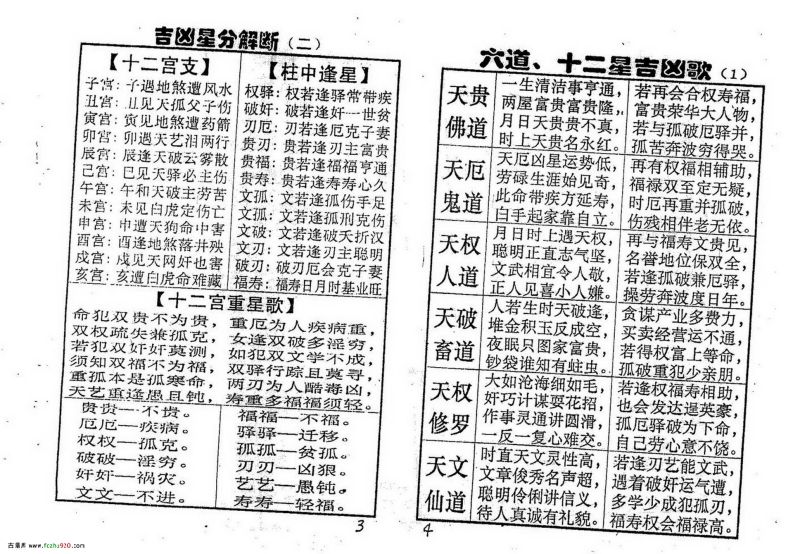 吉凶星分解断(二)
【十二宫支】
子宫:子遇地煞遭风水
丑宫:丑见天孤父子伤
寅宫:寅见地煞遭药箭
卯宫:卯遇天艺泪两行
辰宫:辰逢天破云雾散
己宫:巳见天驿必主伤
午宫:午和天破主劳苦
未宫:未见白虎定伤亡
申宫:申遭天狗命中害
酉宫:酉逢地煞落井殃
戍宫:戍见天网奸也害
亥宫:亥遭白虎命难藏
【柱中逢星】
权驿:权若逢驿常带疾
破奸:破若逢奸一世贫
刃厄:刃若逢厄克子妻
贵刃:贵若逢刃主富贵
贵福:贵若逢福福亨通
贵寿:贵若逢寿寿心久
文孤:文若逢孤伤手足
文孤:文若逢孤刑克伤
文破:文若逢破夭折汉
文刃:文若逢刃主聪明
破刃:破刃厄会克子妻
福寿:福寿日月时基业旺
【十二宫重星歌】
命犯双贵不为贵,重厄为人疾病重,
双权疏失兼孤克,女逢双破多淫穷,
若犯双奸奸莫测,如犯双文学不成,
须知双福不为福,双驿行踪且莫寻,
重孤本是孤寒命,两刃为人酷毒凶,
天艺重逢愚且钝,寿重多福福须轻。
贵贵—不贵。
厄厄—疾病。
权权—孤克。
破破—淫穷。
奸奸—祸灾。
文文—不进。
福福—不福。
驿驿—迁移。
孤孤—贫孤。
刃刃—凶狠。
艺艺—愚钝。
寿寿—轻福。
3
六道、十二星吉凶歌(1)
天贵
佛道
一生清洁事亨通,
两屋富贵贵隆,
月日天贵贵不真,
时上天贵名永红。
若再会合权寿福,
富贵荣华大人物,
若与孤破厄驿并,
孤苦奔波穷得哭。
天厄
鬼道
天厄凶星运势低,
劳碌生涯始见奇,
此命带疾方延寿,
白手起家靠自立。
再有权福相辅助,
福禄双至定无疑,
时厄再重并孤破,
伤残相伴老无依。
天权
人道
月日时上遇天权,
聪明正直志气坚,
文武相宜令人敬,
正人见喜小人嫌。
再与福寿文贵见,
名誉地位保双全,
若逢孤破兼厄驿,
操劳奔波度日年。
天破
畜道
人若生时天破逢,
堆金积玉反成空,
夜眠只图家富贵,
钞袋谁知有蛀虫。
贪谋产业多费力,
买卖经营运不通,
若得权富上等命,
孤破重犯少亲朋。
天权
修罗
大如沧海细如毛,
奸巧计谋耍花招,
作事灵通讲圆滑,
一反一复心难交。
若逢权福寿相助,
也会发达逞英豪,
孤厄驿破为下命,
自己劳心意不饶。
天文
仙道
时直天文灵性高,
文章俊秀名声超,
聪明伶俐讲信义,
待人真诚有礼貌。
若逢刃艺能文武,
遇着破奸运气遭,
多学少成犯孤刃,
福寿权会福禄高。
4
www.fczhu920.com